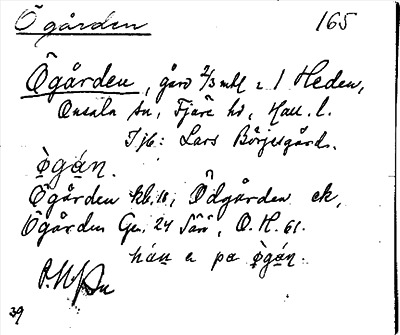 Ögården 165
Ögården, gård 2/3 mtl i 1 Heden,
Onsala sn, Fjäre hd, Hall. l.
I jb: Lars Börjesgård.
ò̱gá̱n.
Ögården kb. 10, Ödgården ek,
Ögården Gen. 24 Särö, O. H. 61.
hán e pa ò̱gá̱n.
39